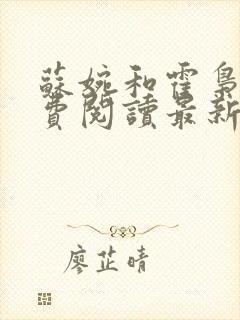 蘇婉和霍梟
費閱讀最新
廖芷晴